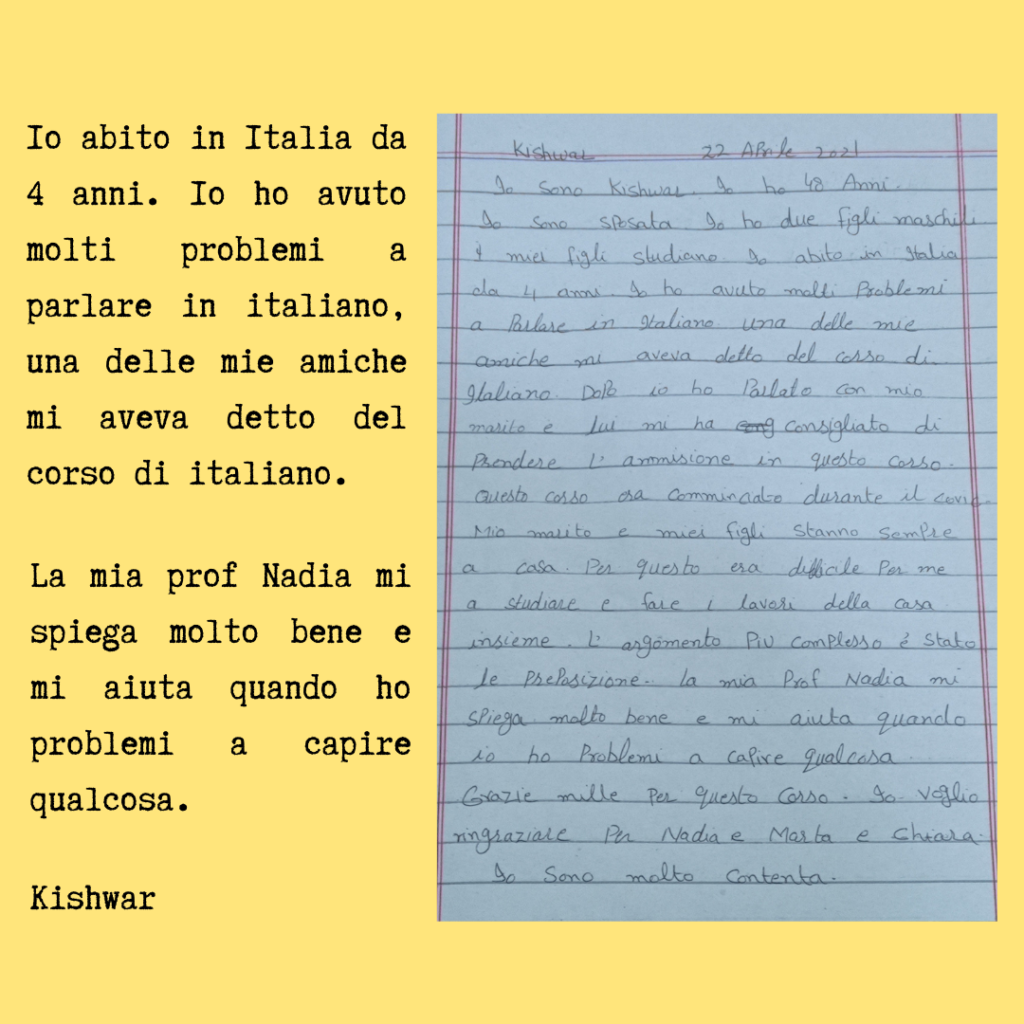 Io abito in Italia da
4 anni. Io ho avuto
molti problemi a
parlare in italiano,
una delle mie amiche
mi aveva detto del
corso di italiano.
La mia prof Nadia mi
spiega molto bene e
mi aiuta quando ho
problemi a capire
qualcosa.
Kishwar
Kishwar 22 Aprile 2021
Io sono Kishwar. Io ho 48 Anni.
Io sono sposata. Io ho due figli maschili
I miei figli studiano. Io abito in Italia
da 4 anni. Io ho avuto molti Problemi
a Parlare in Italiano. una delle mie
amiche mi aveva detto del corso di
Italiano. Dopo io ho Parlato con mio
marito e lui mi ha consigliato di
Prendere l'ammisione in questo corso.
Questo corso era comminciato durante il covid.
Mio marito e miei figli stanno sempre
a casa. Per questo era difficile Per me
a studiare e fare i lavori della casa
insieme. L'argomento Piu complesso é stato
le Preposizione. la mia Prof Nadia mi
spiega molto bene e mi aiuta quando
io ho Problemi a capire qualcosa.
Grazie mille Per questo corso. Io voglio
ringraziare Per Nadia e Marta e Chiara.
Io sono molto contenta.